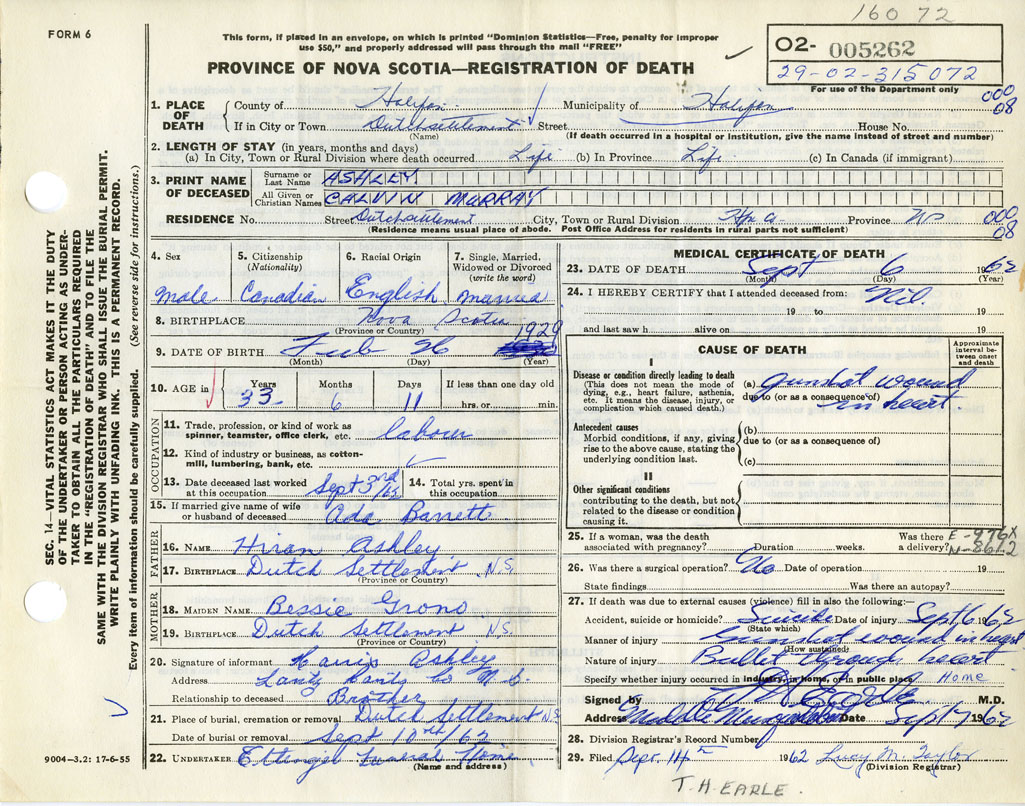 160 72
FORM 6
This form, if placed in an envelope, on which is printed "Dominion Statistics—Free, penalty for improper
use $50," and properly addressed will pass through the mail "FREE"
PROVINCE OF NOVA SCOTIA—REGISTRATION OF DEATH
02- 005262
29-02-315072
For use of the Department only
000
08
1. PLACE OF DEATH
County of Halifax Municipality of Halifax
If in City or Town Dutch settlement Street House No.
(Name) (If death occurred in a hospital or institution, give the name instead of street and number)
2. LENGTH OF STAY (in years, months and days)
(a) In City, Town or Rural Division where death occurred Life (b) In Province Life (c) In Canada (if immigrant)
3. PRINT NAME OF DECEASED
Surname or Last Name ASHLEY
All Given or Christian Names CALVIN MURRAY
RESIDENCE No. Street Dutch settlement City, Town or Rural Division Province NS
(Residence means usual place of abode. Post Office Address for residents in rural parts not sufficient)
000
08
4. Sex 5. Citizenship (Nationality) 6. Racial Origin 7. Single, Married, Widowed or Divorced (write the word)
Male Canadian English Married
8. BIRTHPLACE Nova Scotia
(Province or Country)
1929
9. DATE OF BIRTH Feb 26
(Month) (Day) (Year)
10. AGE in Years Months Days If less than one day old
33 6 11 hrs. or min.
OCCUPATION
11. Trade, profession, or kind of work as
spinner, teamster, office clerk, etc. labour
12. Kind of industry or business, as cotton-
mill, lumbering, bank, etc.
13. Date deceased last worked
at this occupation Sept 3rd/62
14. Total yrs. spent in
this occupation
15. If married give name of wife
or husband of deceased Ada Barrett
FATHER
16. NAME Hiram Ashley
17. BIRTHPLACE Dutch Settlement N.S.
(Province or Country)
MOTHER
18. MAIDEN NAME Bessie Grono
19. BIRTHPLACE Dutch Settlement N.S.
(Province or Country)
20. Signature of informant Harris Ashley
Address Lantz Hants Co N.S.
Relationship to deceased Brother
21. Place of burial, cremation or removal Dutch Settlement NS
Date of burial or removal Sept 10th/62
22. UNDERTAKER Ettinger Funeral Home
(Name and address)
9004—3.2: 17-6-55
MEDICAL CERTIFICATE OF DEATH
23. DATE OF DEATH Sept 6 1962
(Month) (Day) (Year)
24. I HEREBY CERTIFY that I attended deceased from: Nil.
19 to 19
and last saw h alive on 19
CAUSE OF DEATH
Approximate interval between onset and death
I
Disease or condition directly leading to death
(This does not mean the mode of
dying, e.g., heart failure, asthenia,
etc. It means the disease, injury, or
complication which caused death.)
(a) Gunshot wound
due to (or as a consequence of)
in heart.
Antecedent causes
Morbid conditions, if any, giving
rise to the above cause, stating the
underlying condition last.
(b)
due to (or as a consequence of)
(c)
II
Other significant conditions
contributing to the death, but not
related to the disease or condition
causing it.
25. If a woman, was the death
associated with pregnancy? Duration weeks. Was there
a delivery?
E-976X
N-861.2
26. Was there a surgical operation? No Date of operation 19
State findings Was there an autopsy?
27. If death was due to external causes (violence) fill in also the following:—
Accident, suicide or homicide? Suicide Date of injury Sept 6 1962
(State which)
Manner of injury Gunshot wound in heart
(How sustained)
Nature of injury Bullet through heart
Specify whether injury occurred in industry, in home, or in public place Home
Signed by M.D.
Address Middle Musquodoboit Date Sept 7 1962
28. Division Registrar's Record Number
29. Filed Sept. 14 1962 Lucy M. Taylor
(Division Registrar)
T.H. EARLE.
SEC. 14—VITAL STATISTICS ACT MAKES IT THE DUTY
OF THE UNDERTAKER OR PERSON ACTING AS UNDER-
TAKER TO OBTAIN ALL THE PARTICULARS REQUIRED
IN THE "REGISTRATION OF DEATH" AND TO FILE THE
SAME WITH THE DIVISION REGISTRAR WHO SHALL ISSUE THE BURIAL PERMIT.
WRITE PLAINLY WITH UNFADING INK. THIS IS A PERMANENT RECORD.
Every item of information should be carefully supplied. (See reverse side for instructions.)